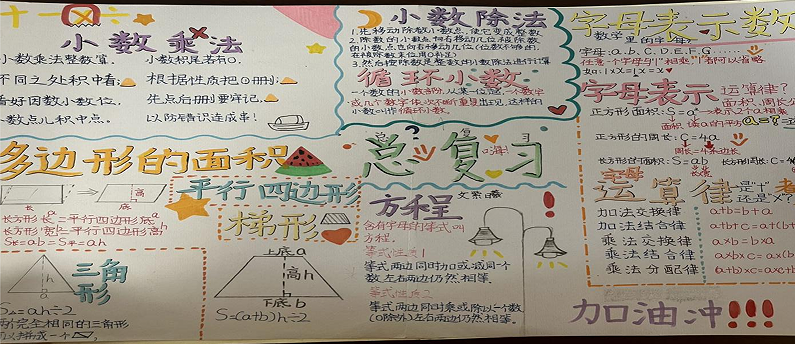 十一 × ÷
小数乘法
小数乘法整数算,
不同之处积中看;
看好因数小数位,
小数点儿积中点。
小数积尾若有0,
根据性质把0删;
先点后删要牢记,
以防错识连成串!
小数除法
1.先移动除数小数点,使它变成整数
2.除数的小数点向右移动几位,被除数
的小数点也向右移动几位(位数不够的,
在被除数末位用0补足)
3.然后按除数是整数的小数除法进行计算
循环小数
一个数的小数部分,从某一位起,一个数字
或几个数字依次不断重复出现,这样的
小数叫作循环小数。
字母表示数
数学里的字母:
字母:a.b.C.D.E.F.G……
任意一个字母与“1”相乘,“1”都可以省略
如:1×X=1×X=X
字母表示
运算律?
正方形面积:S=a²→表示2个a相乘
面积 读:a的平方
正方形的周长:C=4a
周长=4条边长
长方形的面积:S=ab
长方形周长:C=
字母
运算律
加法交换律 a+b=b+a
加法结合律
乘法交换律 a×b=b×a
乘法结合律
乘法分配律
加油冲!!!
多边形的面积
平行四边形
长
底
高
长方形长=平行四边形底
长方形宽=平行四边形高
S长=ab=S平=ah
三角形
S△=ah÷2
两个完全相同的三角形
可以拼成一个
梯形
上底a
高h
下底b
S=(a+b)h÷2
总复习
方程
含有字母的等式叫
方程。
等式性质1
等式两边同时加或减同一个
数左右两边仍然相等。
等式性质2
等式两边同时乘或除以一个数
(0除外)左右两边仍然相等。